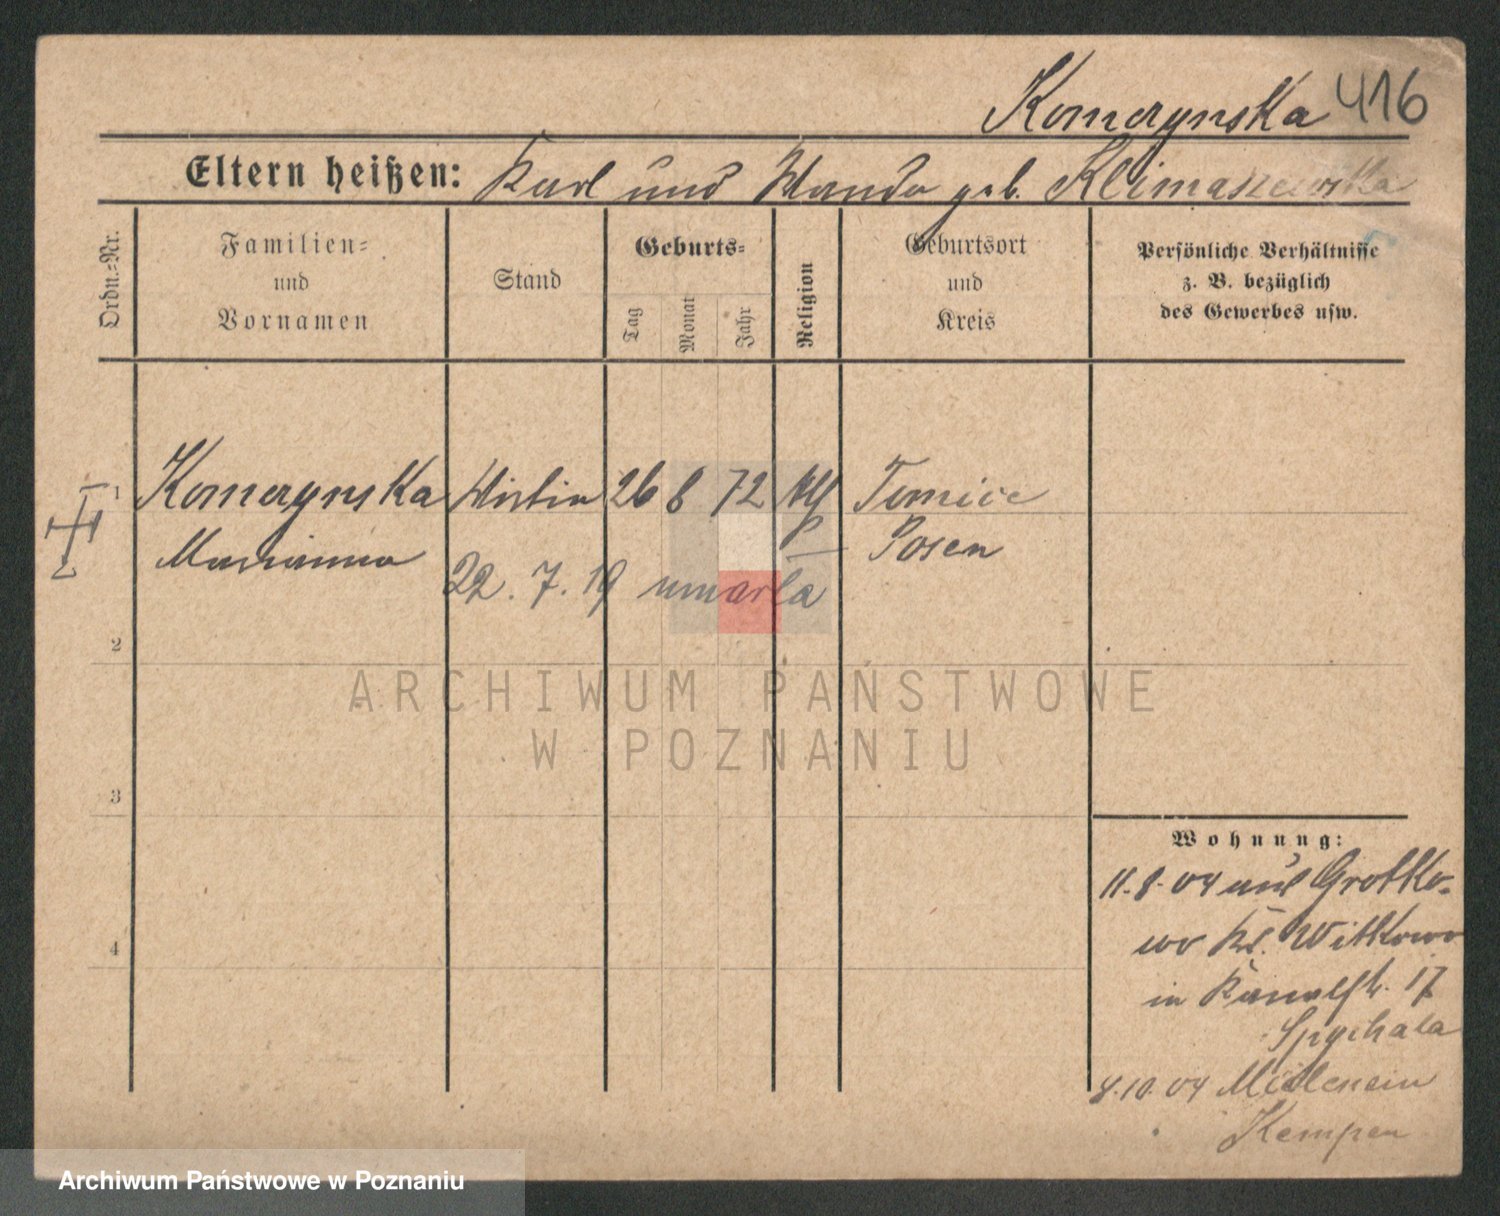 Komerynska 416
Eltern heißen: Karl und Wanda geb. Klimaszewska
Ordn.-Nr.
Familien-
und
Vornamen
Stand
Geburts-
Tag
Monat
Jahr
Religion
Geburtsort
und
Kreis
Persönliche Verhältnisse
z. B. bezüglich
des Gewerbes usw.
1 Komerynska Wirtin 26 8 72 Tomice
Marianna Posen
22. 7. 19 umarła
2
ARCHIWUM PAŃSTWOWE
W POZNANIU
3
4
Wohnung:
11.8.04 aus Grotko-
wo Kr. Witkowo
in Kanalstr. 17
Spychala
8.10.04
Kempen
Archiwum Państwowe w Poznaniu